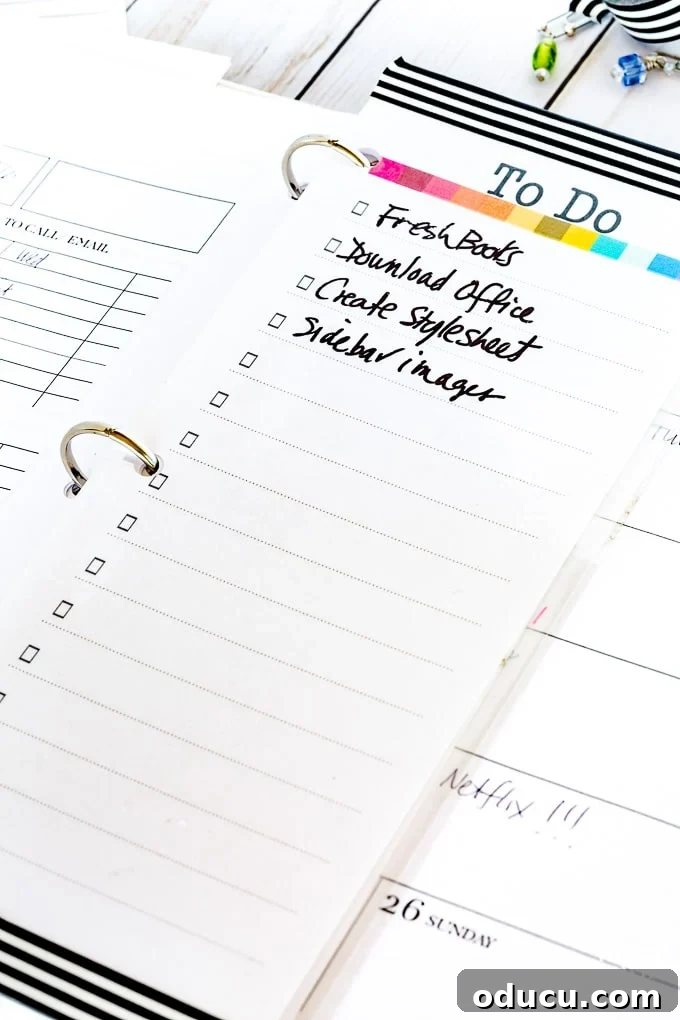 To Do
FreshBooks
Download Office
Create Stylesheet
Sidebar images
TO CALL EMAIL
Wed
Netflix !!!
26 SUNDAY
oducu.com